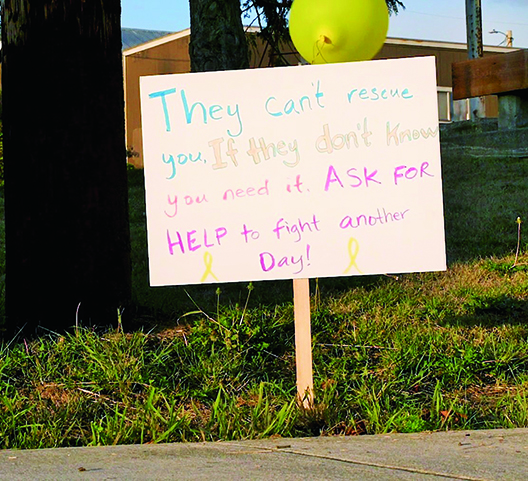 They can't rescue
you, If they don't Know
you need it. ASK FOR
HELP to fight another
Day!